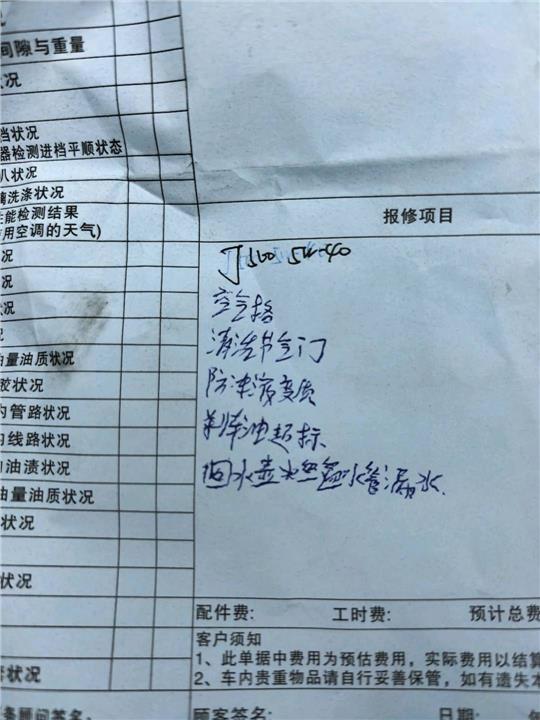 间隙与重量
状况
挡状况
器检测进档平顺状态
八状况
璃洗涤状况
性能检测结果
用空调的天气)
况
况
状况
况
油量油质状况
胶状况
内管路状况
内线路状况
油渍状况
油量油质状况
状况
状况
状况
务顾问签名:
报修项目
J500 5W-40
空气格
清洗节气门
防冻液变质
刹车油超标
回水壶水管漏水
配件费: 工时费: 预计总费
客户须知
1、此单据中费用为预估费用,实际费用以结算
2、车内贵重物品请自行妥善保管,如有遗失本
顾客签名: 日期: